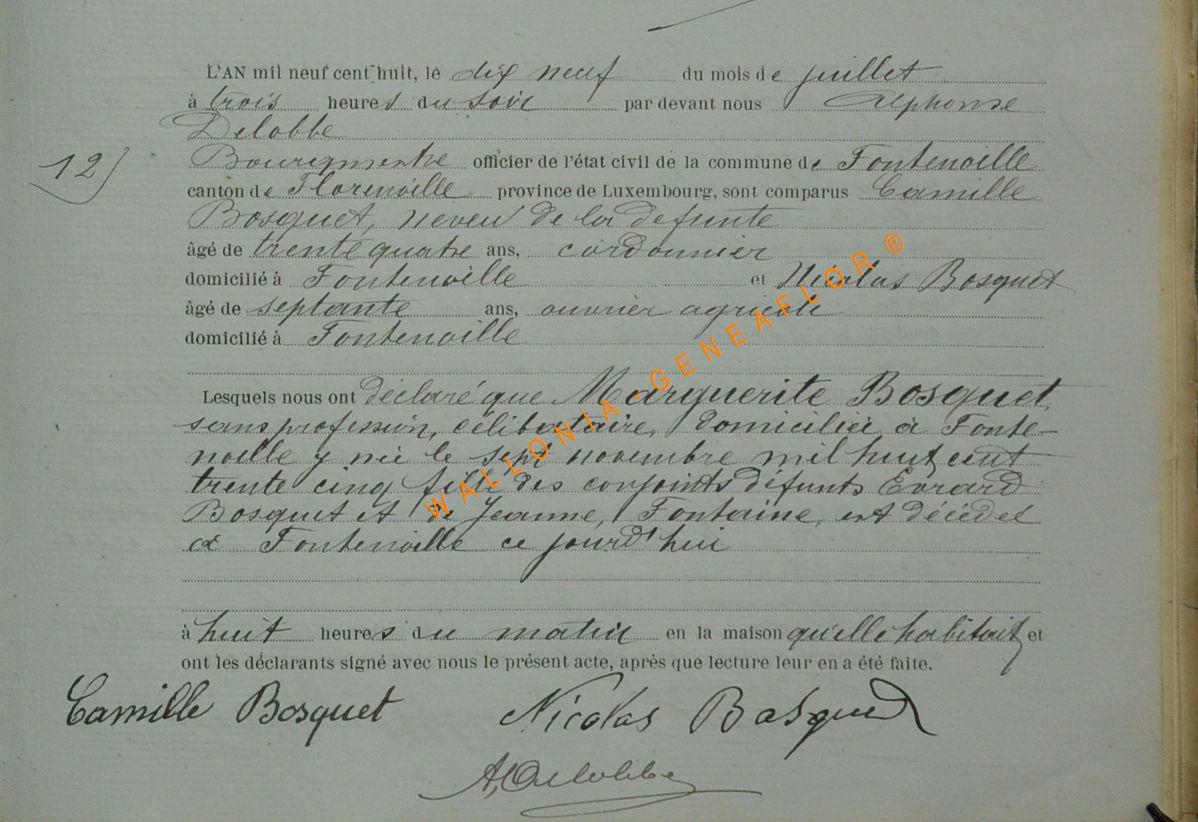 L'AN mil neuf cent huit, le dix neuf du mois de juillet
à trois heures du soir par devant nous Alphonse
Delobbe
12) Bourgmestre officier de l'état civil de la commune de Fontenoille
canton de Florenville province de Luxembourg, sont comparus Camille
Bosquet, neveu de la defunte
âgé de trente quatre ans, cordonnier
domicilié à Fontenoille et Nicolas Bosquet
âgé de septante ans, ouvrier agricole
domicilié à Fontenoille
Lesquels nous ont déclaré que Marguerite Bosquet,
sans profession, célibataire, domiciliée à Fonte-
noille y née le sept novembre mil huit cent
trente cinq fille des conjoints défunts Evrard
Bosquet et de Jeanne, Fontaine, est décédée
à Fontenoille ce jourd'hui
à huit heures du matin en la maison qu'elle habitait et
ont les déclarants signé avec nous le présent acte, après que lecture leur en a été faite.
Camille Bosquet Nicolas Bosquet
A, Delobbe
WALLONIA-GENEAFLOR®